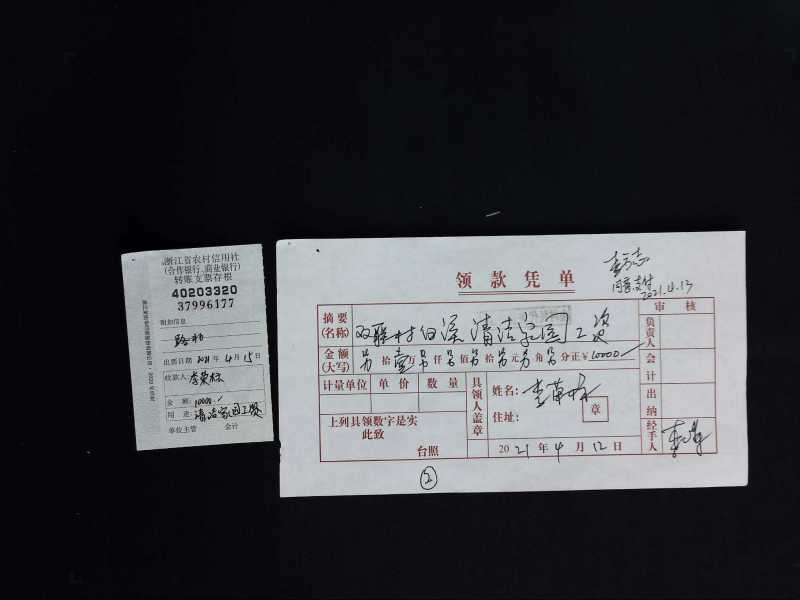 浙江省农村信用社
(合作银行、商业银行)
转账支票存根
40203320
37996177
附加信息
出票日期 2021年4月15日
收款人 李荣标
金额:10000.-
用途:清洁家园工资
单位主管 会计
领款凭单
同意支付
2021.4.13
摘要(名称) 村 清洁家园工资
金额(大写) 另拾壹万另仟另佰另拾另元另角另分正¥10000
计量单位 单价 数量
上列具领数字是实
此致
台照
具领人盖章
姓名:李荣标
住址:
章
2021年4月12日
审核
负责人
会计
出纳
经手人
2